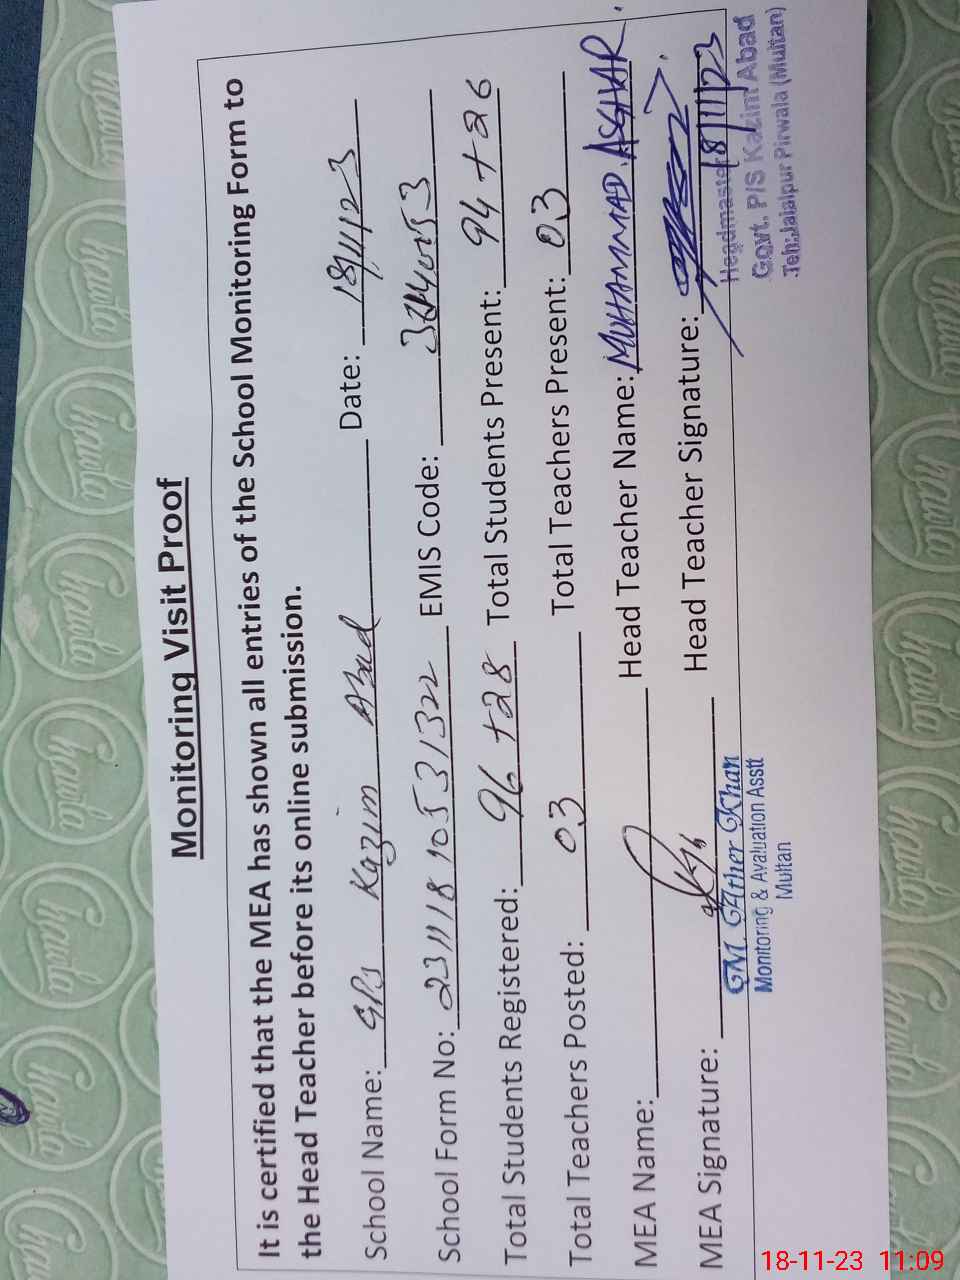 Monitoring Visit Proof
It is certified that the MEA has shown all entries of the School Monitoring Form to
the Head Teacher before its online submission.
School Name: GPS Kazim Abad Date: 18/11/23
School Form No: 23111810531322 EMIS Code:
Total Students Registered: 96 +28 Total Students Present: 94 + 26
Total Teachers Posted: 03 Total Teachers Present: 03
MEA Name: Head Teacher Name: MUHAMMAD ASGHAR.
MEA Signature: Head Teacher Signature: 18/11/23
M. Ather Khan
Monitoring & Avaluation Asstt
Multan
Headmaster
Govt. P/S Kazim Abad
Teh:Jalalpur Pirwala (Multan)
Chawla
18-11-23 11:09